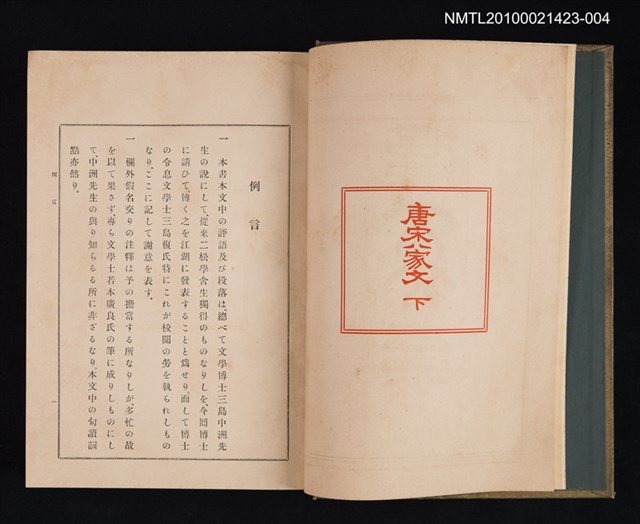 NMTL20100021423-004
唐宋八家文 下
例言
一 本書本文中の評語及び段落は、總べて文學博士三島中洲先
生の說にして、從來二松學舍生獨得のものなりしを、今囘博士
に請ひて、博く之を江湖に發表することと爲せり、而して博士
の令息文學士三島復氏特にこれが校閱の勞を執られしもの
なり。ここに記して謝意を表す。
一 欄外假名交りの注釋は予の擔當する所なりしが、多忙の故
を以て果さず、專ら文學士若木廣良氏の筆に成りしものにし
て、中洲先生の與り知らるる所に非ざるなり、本文中の句讀訓
點亦然り。
例言
一